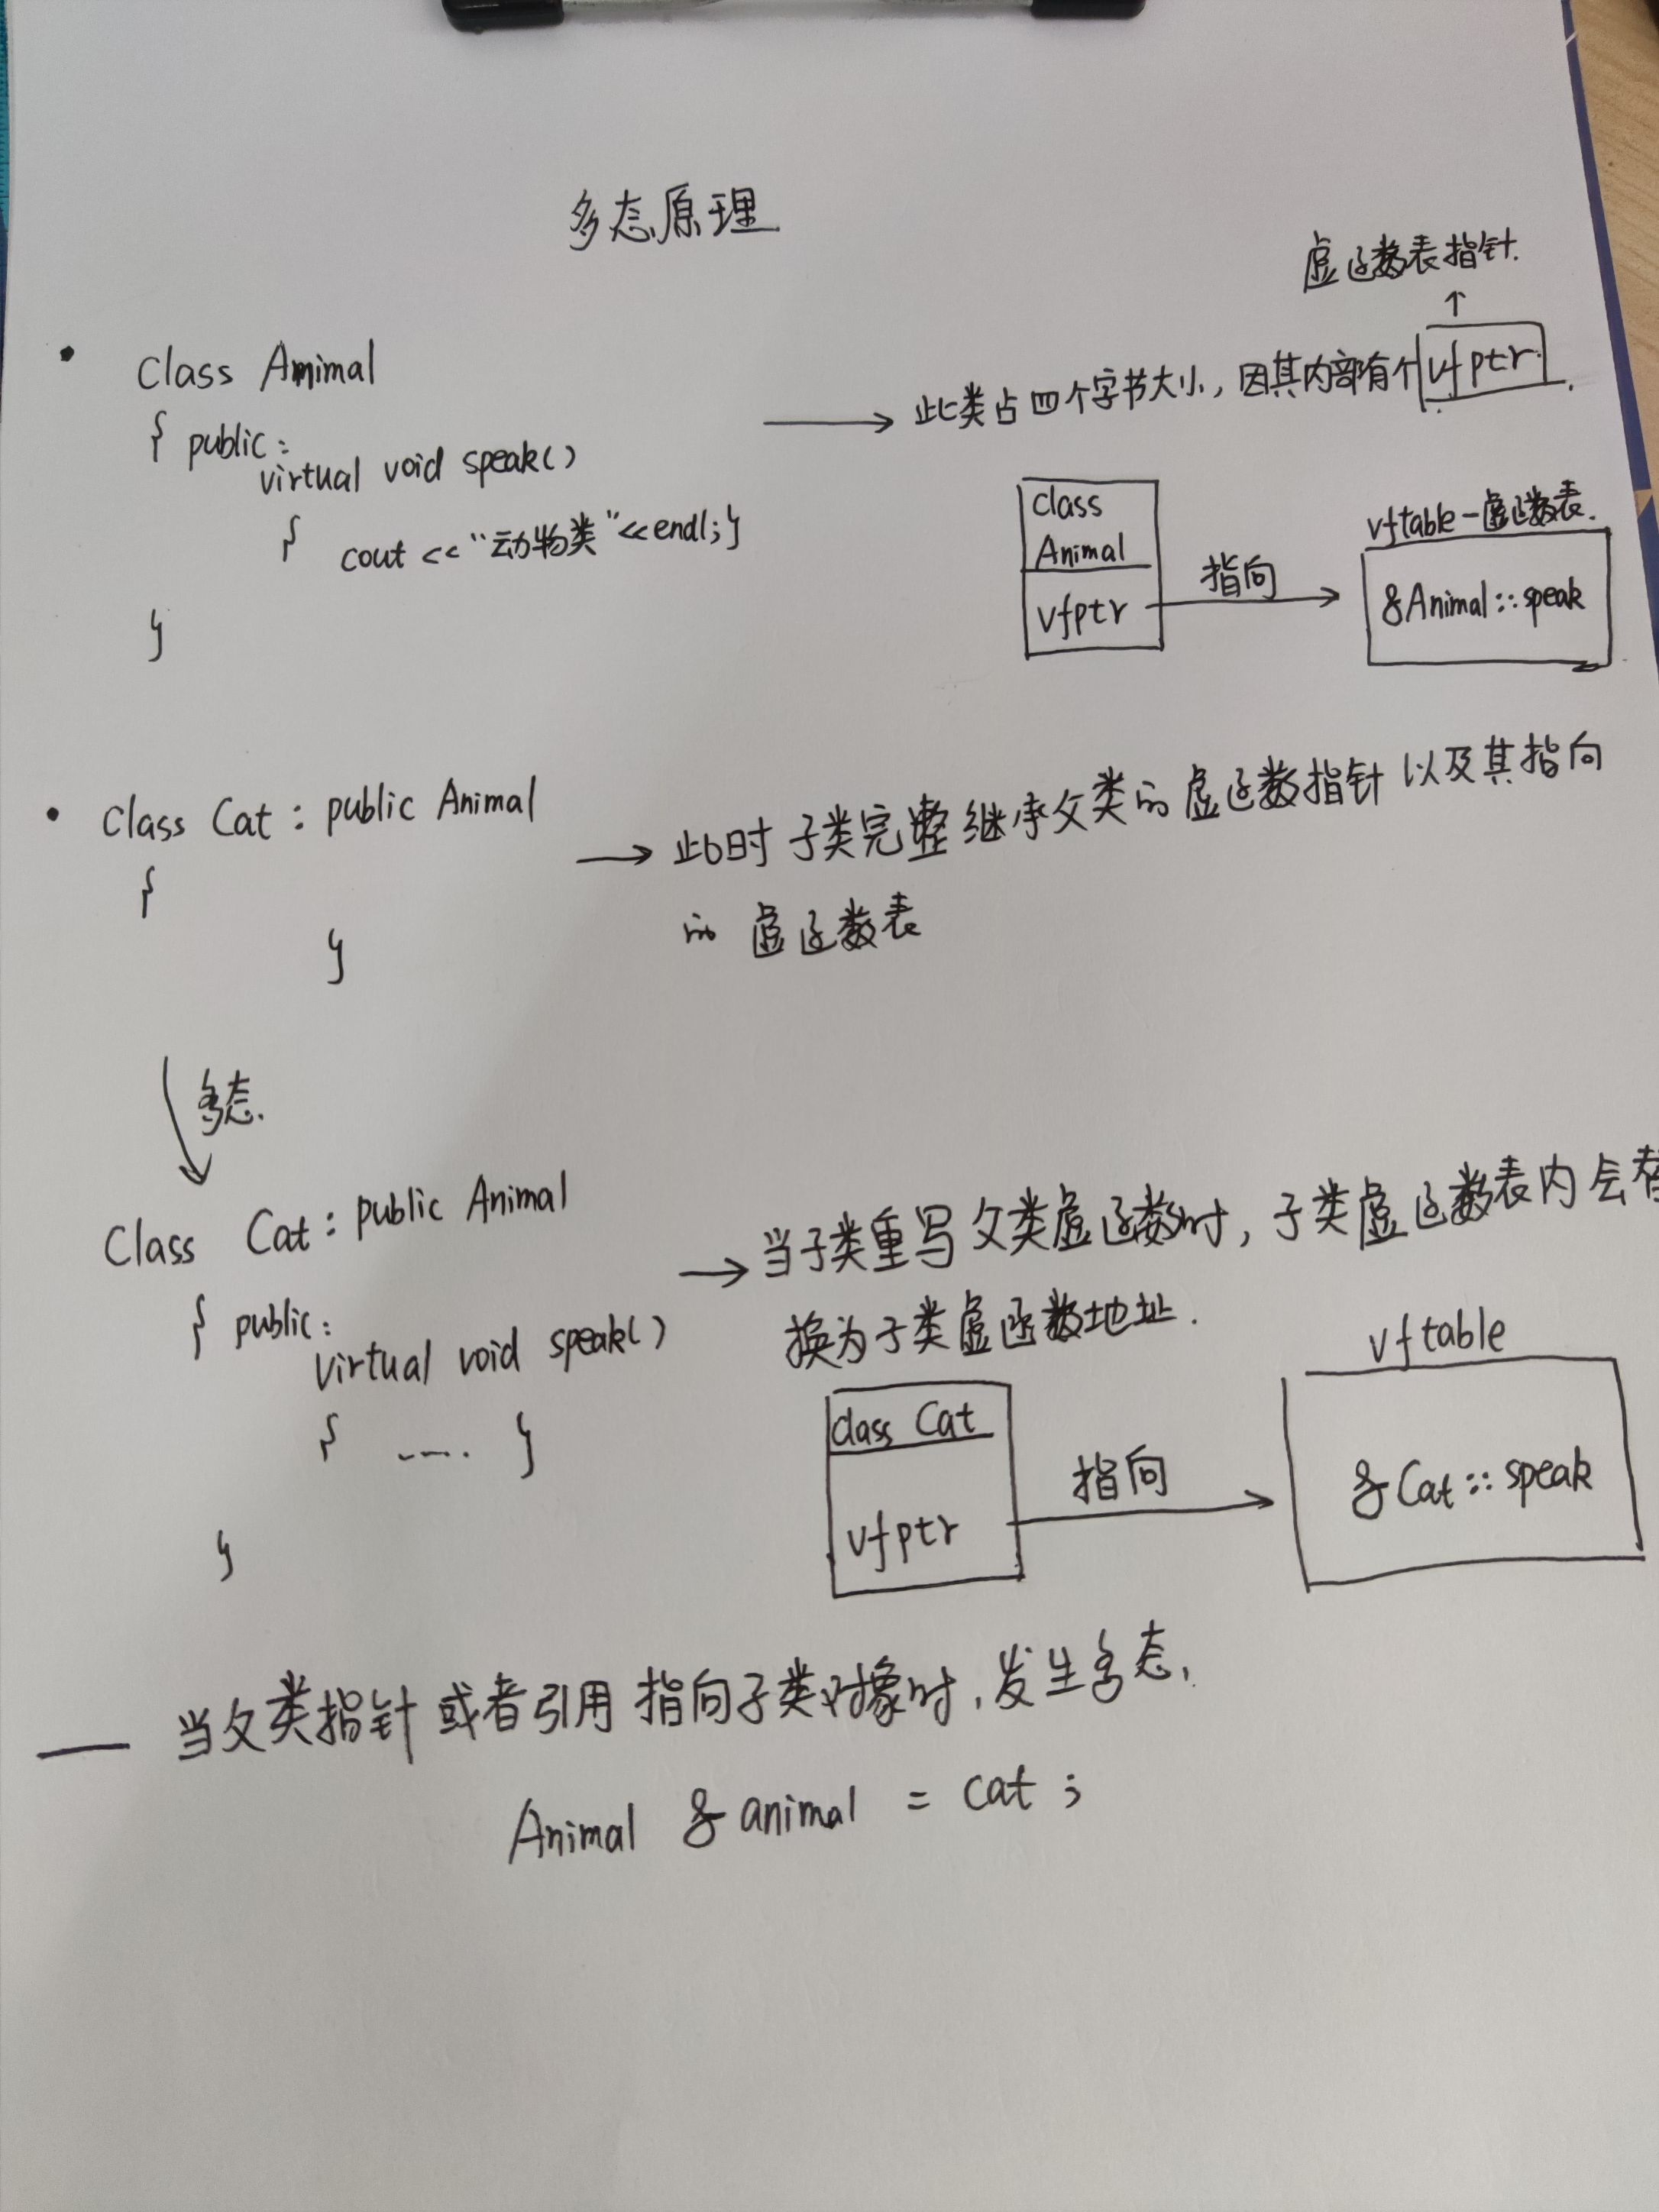 多态原理
虚函数表指针.
↑
· Class Animal
{ public:
virtual void speak()
{ cout << "动物类" << endl; }
}
→ 此类占四个字节大小, 因其内部有个 vfptr.
class
Animal
vfptr
指向
vftable-虚函数表.
&Animal::speak
· Class Cat : public Animal
{
}
→ 此时子类完整继承父类的虚函数指针以及其指向
的 虚函数表
多态.
Class Cat : public Animal
{ public:
virtual void speak()
{ ---. }
}
→ 当子类重写父类虚函数时, 子类虚函数表内会替
换为子类虚函数地址.
class Cat
vfptr
指向
vftable
&Cat::speak
— 当父类指针或者引用指向子类对象时, 发生多态,
Animal & animal = cat ;